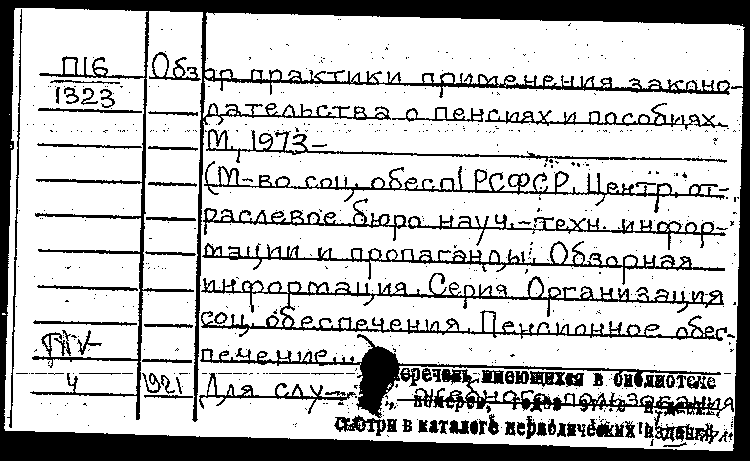 П16 Обзор практики применения законо-
1323 дательства о пенсиях и пособиях.
М, 1973-
(М-во соц. обесп РСФСР. Центр. от-
раслевое бюро науч.-техн. инфор-
мации и пропаганды. Обзорная
информация. Серия Организация
соц. обеспечения. Пенсионное обес-
печение...
Перечень имеющихся в библиотеке
4 1921 Для слу- пользования
номеров, годов
смотри в каталоге периодических изданий